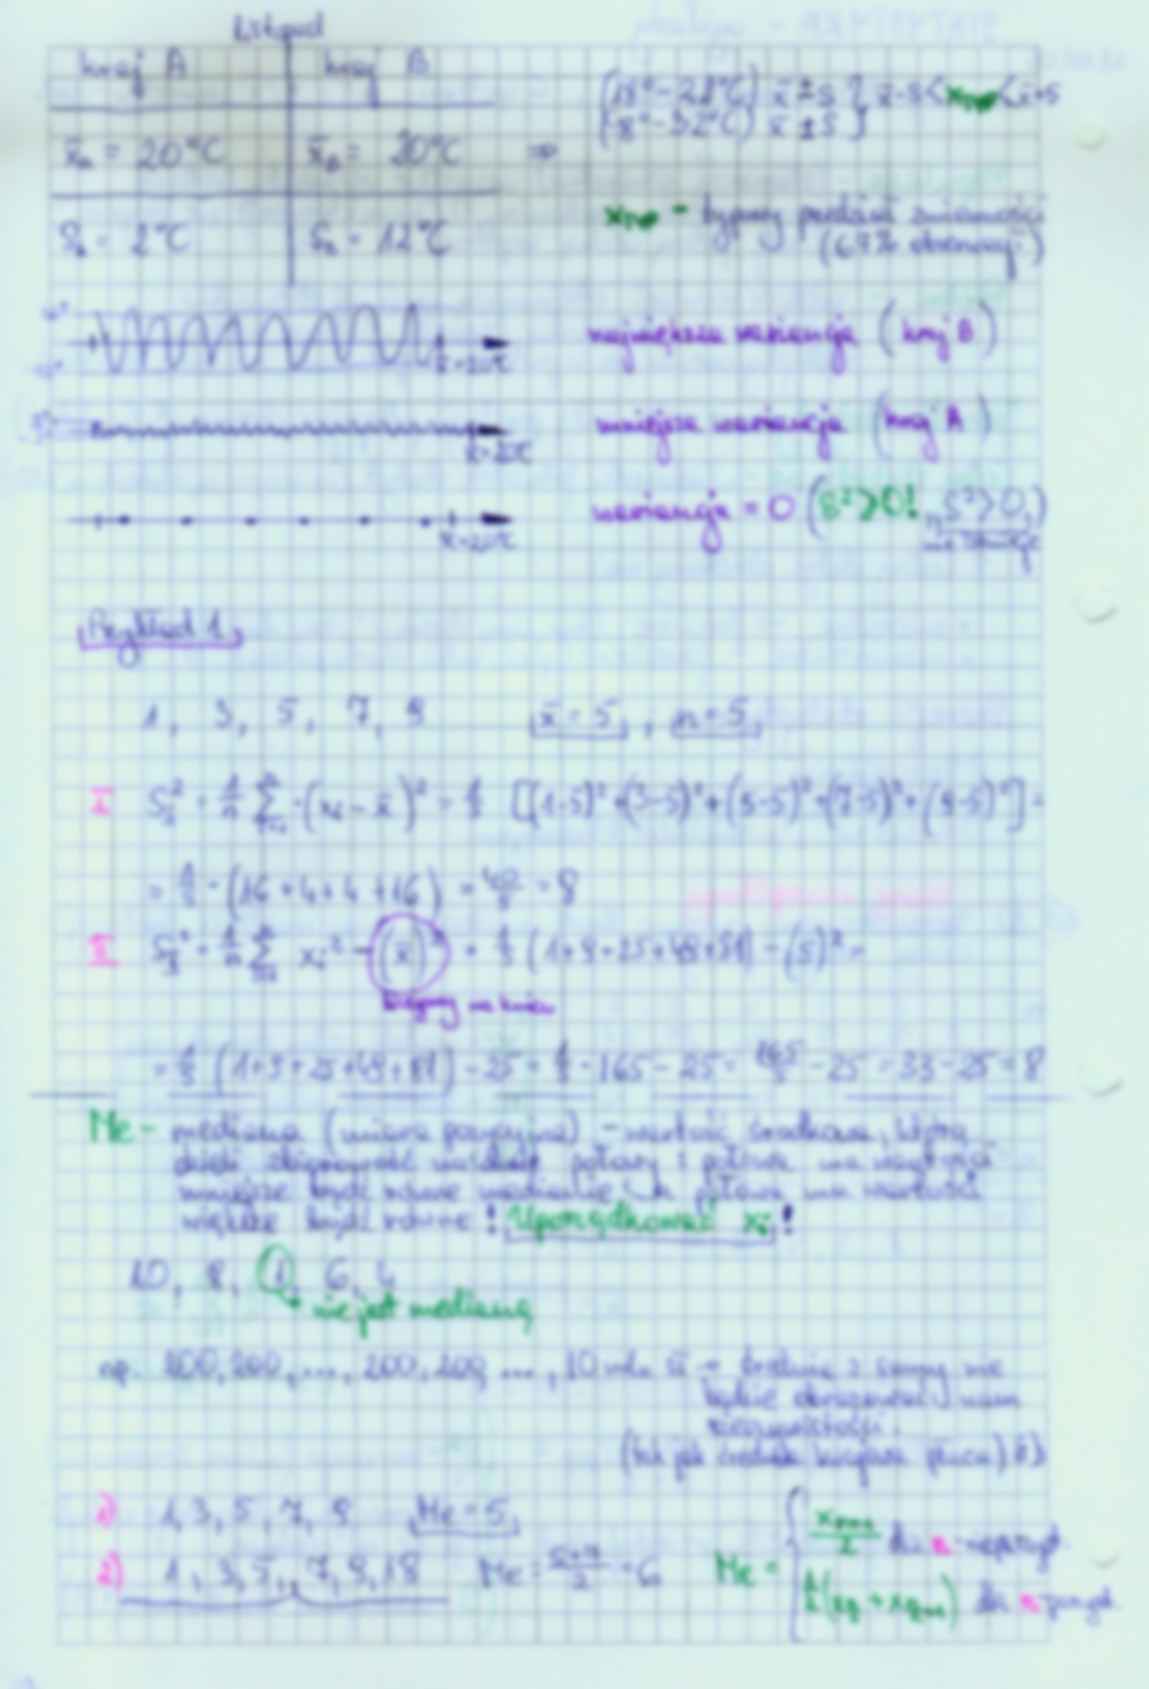 Listopad
kraj A kraj B
x̄A = 20°C x̄B = 20°C ⇒
(18° - 22°C) x̄ ± s } x̄ - s < xtyp < x̄ + s
(8° - 32°C) x̄ ± s }
SA = 2°C SB = 12°C
xtyp - typowy przedział zmienności
(67% obserwacji)
x̄ = 20°C
największa wariancja (kraj B)
x̄ = 20°C
mniejsza wariancja (kraj A)
x̄ = 20°C
wariancja = 0 (S² ≥ 0! „S² > 0”)
nie istnieje
Przykład 1
1, 3, 5, 7, 9 x̄ = 5, n = 5
I S² = 1/n Σ · (xi - x̄)² = 1/5 [(1-5)² + (3-5)² + (5-5)² + (7-5)² + (9-5)²] =
= 1/5 · (16 + 4 + 4 + 16) = 40/5 = 8
II S² = 1/n Σ xi² - (x̄)² = 1/5 (1 + 9 + 25 + 49 + 81) - (5)² =
na końcu
= 1/5 (1 + 9 + 25 + 49 + 81) - 25 = 1/5 · 165 - 25 = 165/5 - 25 = 33 - 25 = 8
Me - mediana (miara pozycyjna) - wartość środkowa, która
dzieli zbiorowość na dwie połowy i połowa ma wartości
mniejsze bądź równe medianie, a połowa ma wartości
większe bądź równe ! Uporządkować xi !
10, 8, 1, 6, 4
nie jest medianą
np. 200, 200, ..., 200, 200, ..., 10 mln zł → średnia z sumy nie
będzie obrazem
rzeczywistości.
(tak jak średnia krajowa płaca)
1) 1, 3, 5, 7, 9 Me = 5
2) 1, 3, 5, 7, 9, 18 Me = 5+7/2 = 6
Me = { xn+1/2 dla n-nieparzyst.
1/2 (xn/2 + xn/2+1) dla n-parzyst.